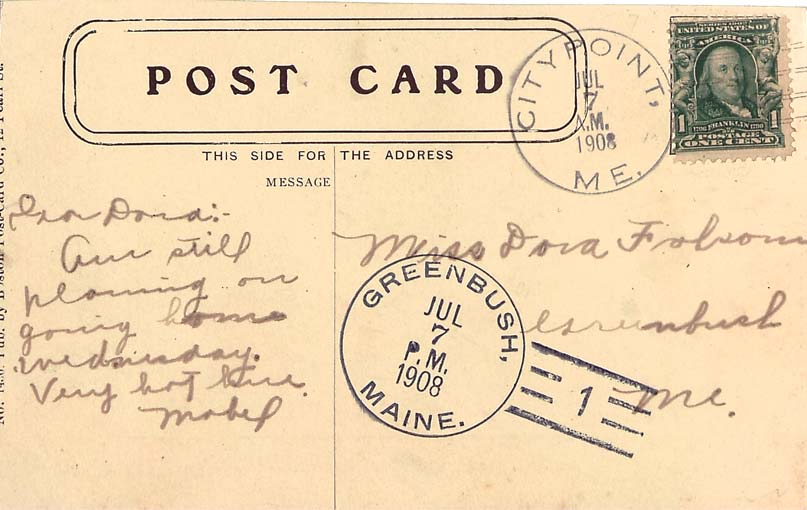 POST CARD
THIS SIDE FOR THE ADDRESS
MESSAGE
CITYPOINT,
JUL
7
A.M.
1908
ME.
SERIES 1902
UNITED STATES OF
AMERICA
1790 FRANKLIN 1790
1 POSTAGE 1
ONE CENT
Dear Dora:-
Am still
planning on
going home
wednesday.
Very hot here.
Mabel
Miss Dora Folsom
Greenbush
Me.
GREENBUSH,
JUL
7
P.M.
1908
MAINE.
1
Pub. by Boston Post-Card Co., 12 Pearl St.